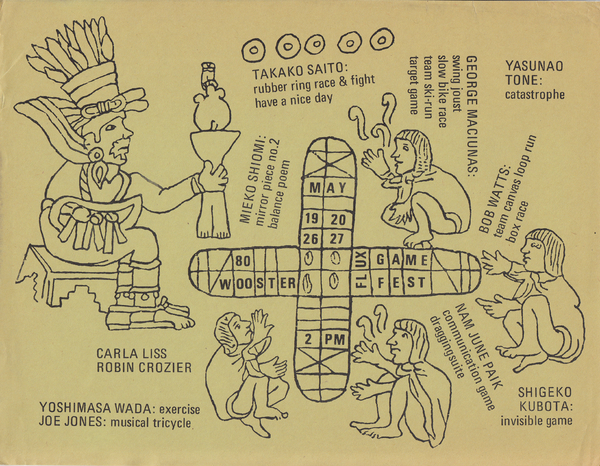 TAKAKO SAITO:
rubber ring race & fight
have a nice day
GEORGE MACIUNAS:
swing joust
slow bike race
team ski-run
target game
YASUNAO
TONE:
catastrophe
MIEKO SHIOMI:
mirror piece no.2
balance poem
BOB WATTS:
team canvas loop run
box race
MAY
19 20
26 27
80
WOOSTER
FLUX
GAME
FEST
2 PM
NAM JUNE PAIK
communication game
draggingsuite
CARLA LISS
ROBIN CROZIER
YOSHIMASA WADA: exercise
JOE JONES: musical tricycle
SHIGEKO
KUBOTA:
invisible game